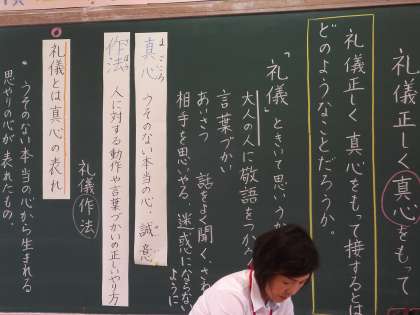 礼儀正しく真心をもって
礼儀正しく真心をもって接するとは
どのようなことだろうか。
「礼儀」ときいて思いうか
大人の人に敬語をつかう
言葉づかい
あいさつ 話をよく聞く、さわ
相手を思いやる、迷惑にならない
ように
真心 うそのない本当の心、誠意
まごころ
作法 人に対する動作や言葉づかいの正しいやり方
さほう
礼儀作法
礼儀とは真心の表れ
うそのない本当の心から生まれる
思いやりの心が表れたもの。